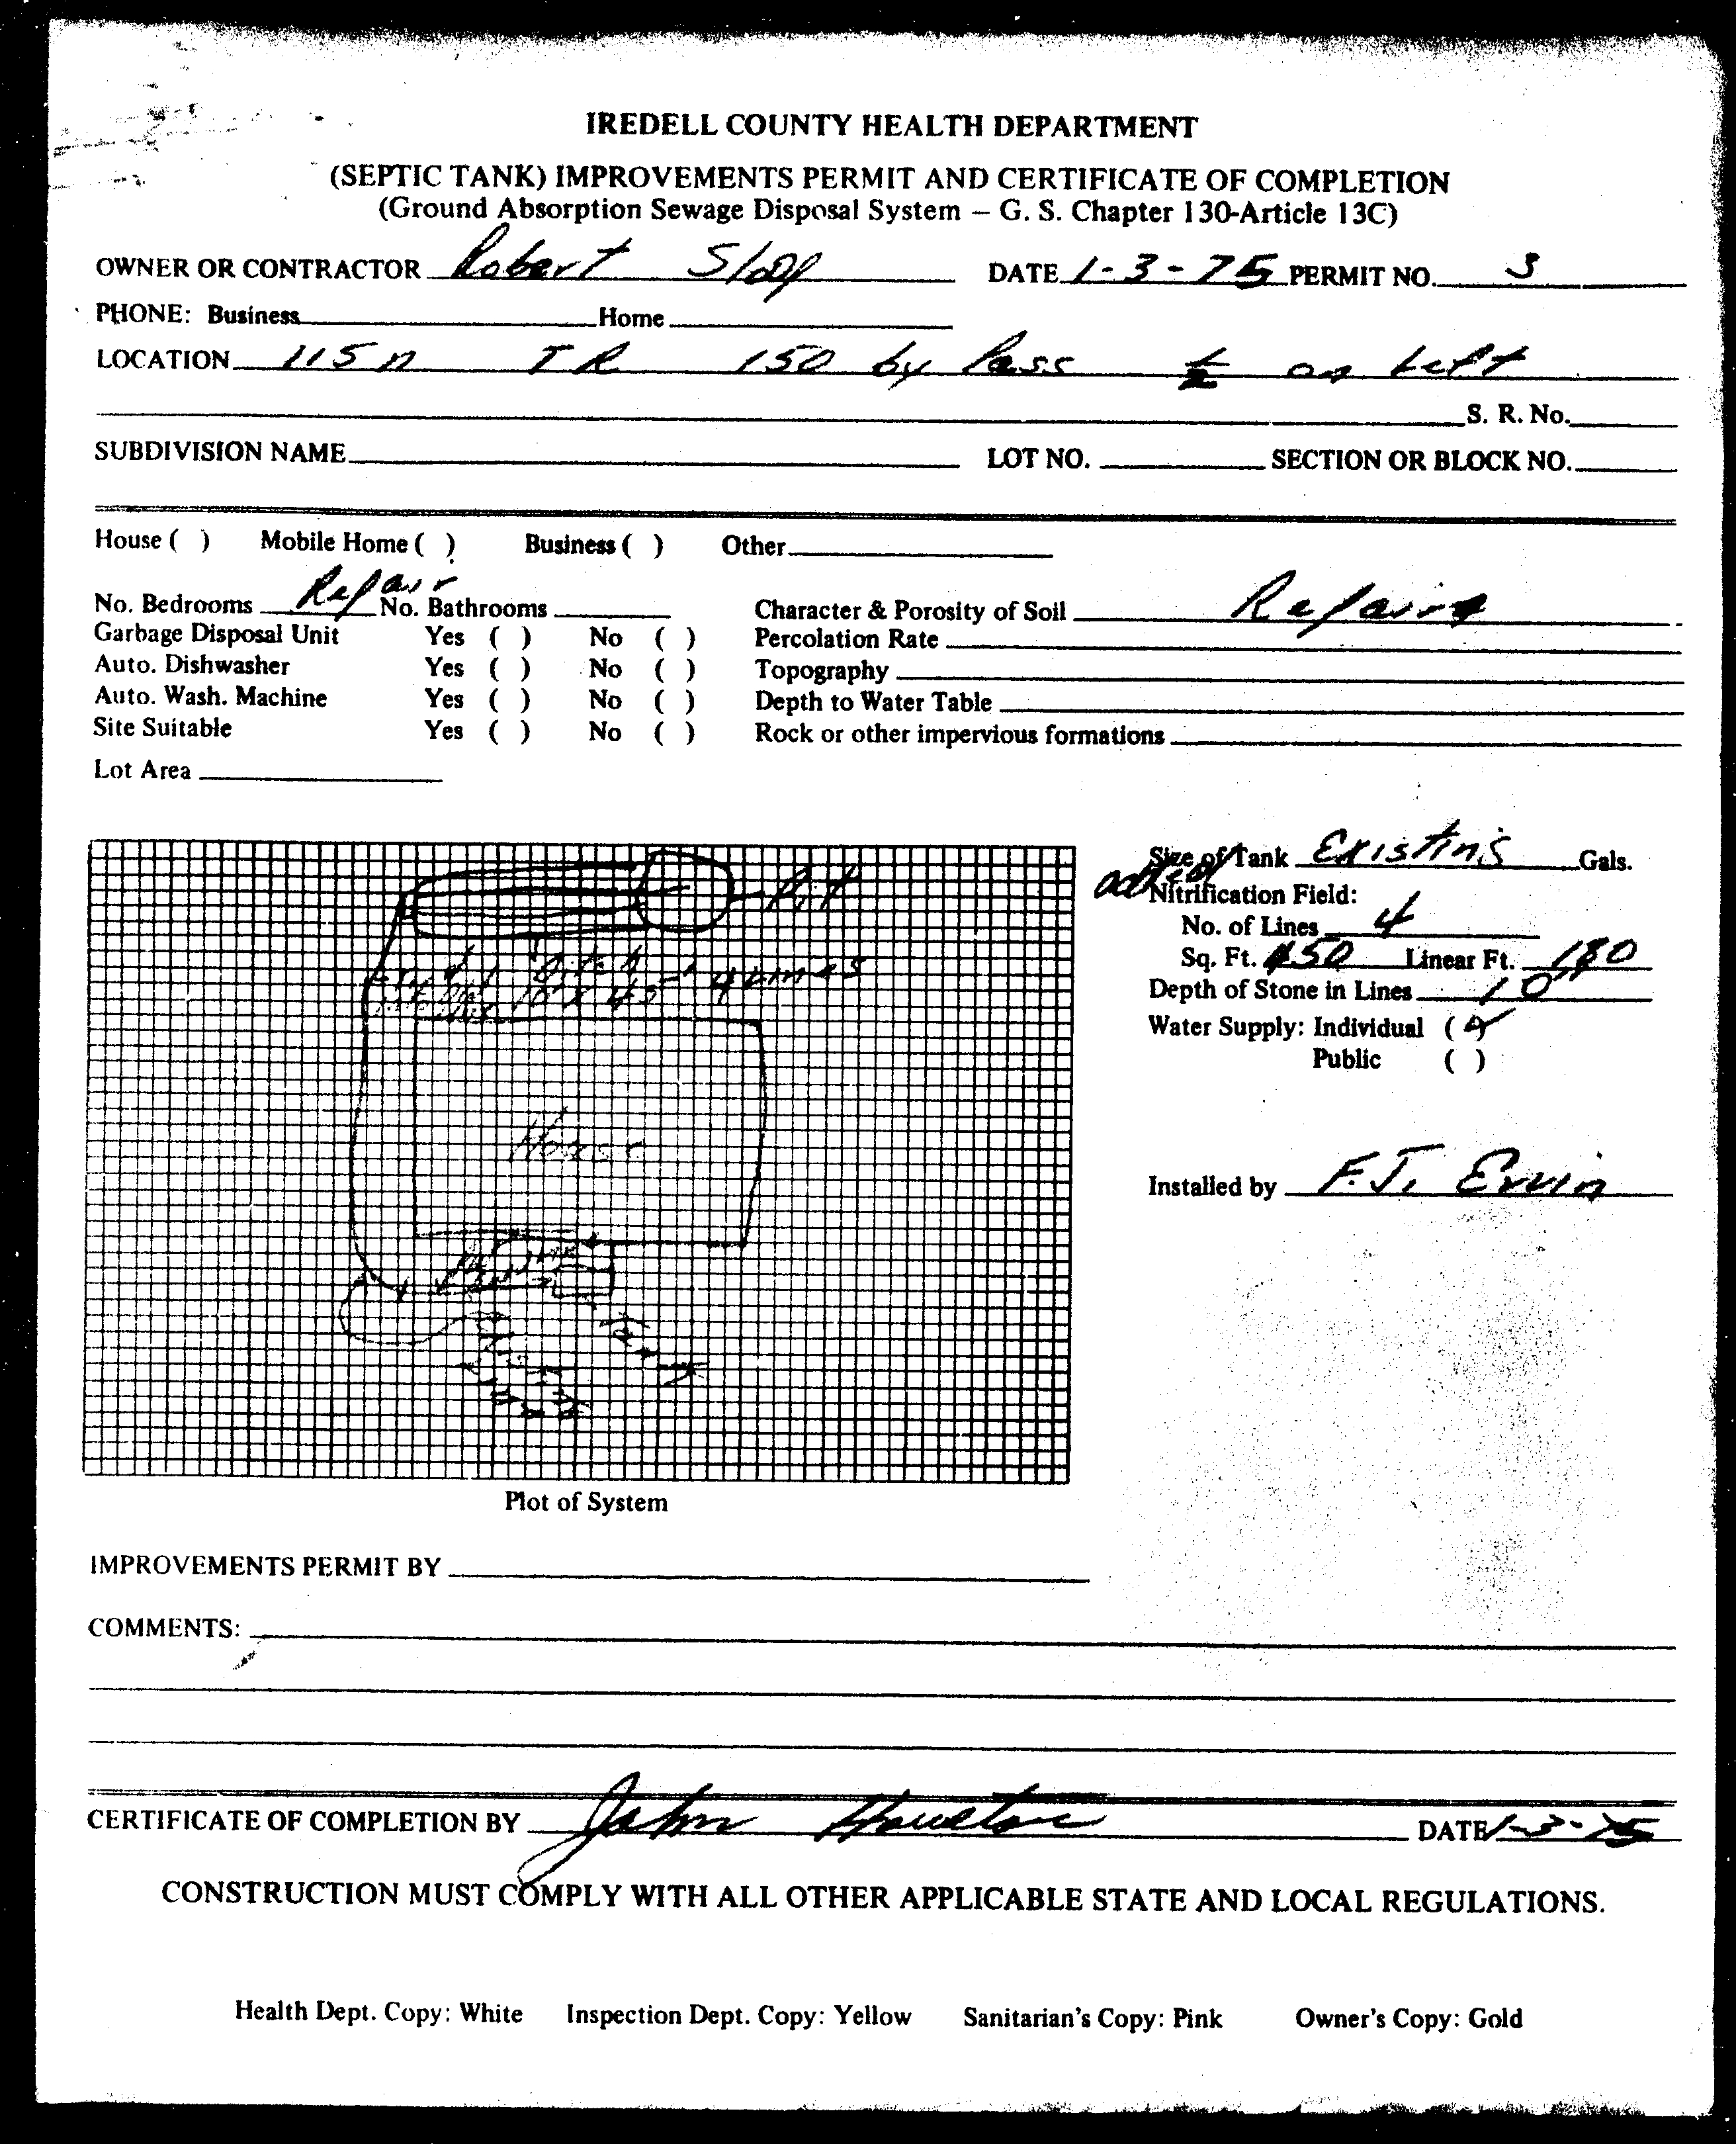 IREDELL COUNTY HEALTH DEPARTMENT
(SEPTIC TANK) IMPROVEMENTS PERMIT AND CERTIFICATE OF COMPLETION
(Ground Absorption Sewage Disposal System – G. S. Chapter 130-Article 13C)
OWNER OR CONTRACTOR Robert Sloop DATE 1-3-75 PERMIT NO. 3
PHONE: Business Home
LOCATION 115 n T R 150 by Pass 1/2 on Left
S. R. No.
SUBDIVISION NAME LOT NO. SECTION OR BLOCK NO.
House ( ) Mobile Home ( ) Business ( ) Other
No. Bedrooms Repair No. Bathrooms Character & Porosity of Soil Repairs
Garbage Disposal Unit Yes ( ) No ( ) Percolation Rate
Auto. Dishwasher Yes ( ) No ( ) Topography
Auto. Wash. Machine Yes ( ) No ( ) Depth to Water Table
Site Suitable Yes ( ) No ( ) Rock or other impervious formations
Lot Area
Size of Tank Existing Gals.
added Nitrification Field:
No. of Lines 4
Sq. Ft. 450 Linear Ft. 180
Depth of Stone in Lines 10"
Water Supply: Individual ( )
Public ( )
Pit
10' x 45' 4 Lines
House
Installed by F.J. Ervin
Plot of System
IMPROVEMENTS PERMIT BY
COMMENTS:
CERTIFICATE OF COMPLETION BY John Houston DATE 1-3-75
CONSTRUCTION MUST COMPLY WITH ALL OTHER APPLICABLE STATE AND LOCAL REGULATIONS.
Health Dept. Copy: White Inspection Dept. Copy: Yellow Sanitarian's Copy: Pink Owner's Copy: Gold